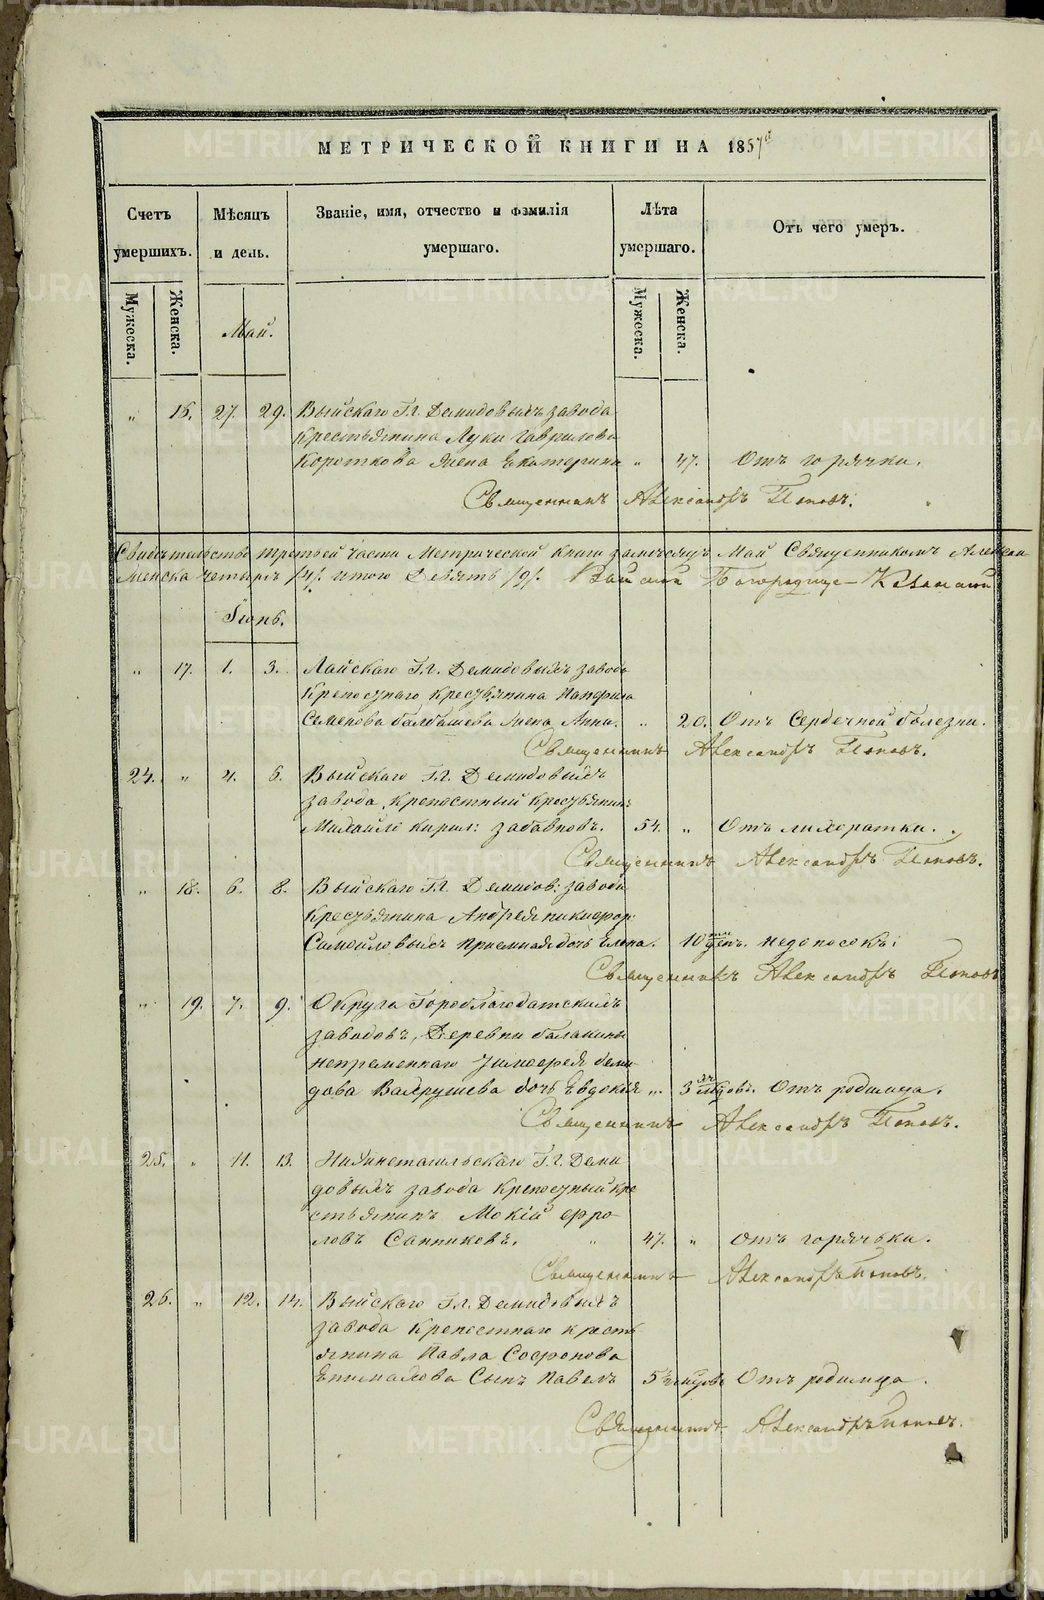 МЕТРИЧЕСКОЙ КНИГИ НА 1857й
Счетъ умершихъ.
Мѣсяцъ и день.
Званіе, имя, отчество и фамилія умершаго.
Лѣта умершаго.
Отъ чего умеръ.
Мужеска. Женска. Мужеска. Женска.
Май.
„ 16. 27. 29. Выйскаго Гг. Демидовыхъ завода
крестьянина Луки Гаврилова
Короткова жена Екатерина „ 47. Отъ горячки.
Священникъ Александръ Поповъ.
Свидѣтельство третьей части Метрической книги за мѣсяцъ Май Священникомъ
Женска четыре /4/. итого Девять /9/. Богородице-Казанской
Іюнь.
„ 17. 1. 3. Лайскаго Гг. Демидовыхъ завода
Крепостнаго крестьянина Панфила
Семенова балдашева жена Анна. „ 20. Отъ Сердечной болезни.
Священникъ Александръ Поповъ.
24. „ 4. 6. Выйскаго Гг. Демидовыхъ
завода, крепостный крестьянинъ
Михайло Кирил: забавновъ. 54. „ Отъ лихоратки.
Священникъ Александръ Поповъ.
„ 18. 6. 8. Выйскаго Гг. Демидов: завода
Крестьянина Андрея никифор:
Самойловыхъ приемная дочь Елена. 10 ден. недоносокъ:
Священникъ Александръ Поповъ
„ 19. 7. 9. Округа Гороблагодатскихъ
заводовъ, Деревни балакины
непременнаго
Вахрушева дочь Евдокія „ 3 Отъ родимца.
Священникъ Александръ Поповъ.
25. „ 11. 13. Нижнетагильскаго Гг. Деми
довыхъ завода Крепостный кре
стьянинъ Мокій фро
ловъ Санниковъ. „ 47. „ Отъ горячьки.
Священникъ Александръ Поповъ.
26. „ 12. 14. Выйскаго Гг. Демидовыхъ
завода Крепостнаго кресть
янина Павла Софронова
Сынъ Павелъ 5 Отъ родимца.
Священникъ Александръ Поповъ.
METRIKI.GASO-URAL.RU